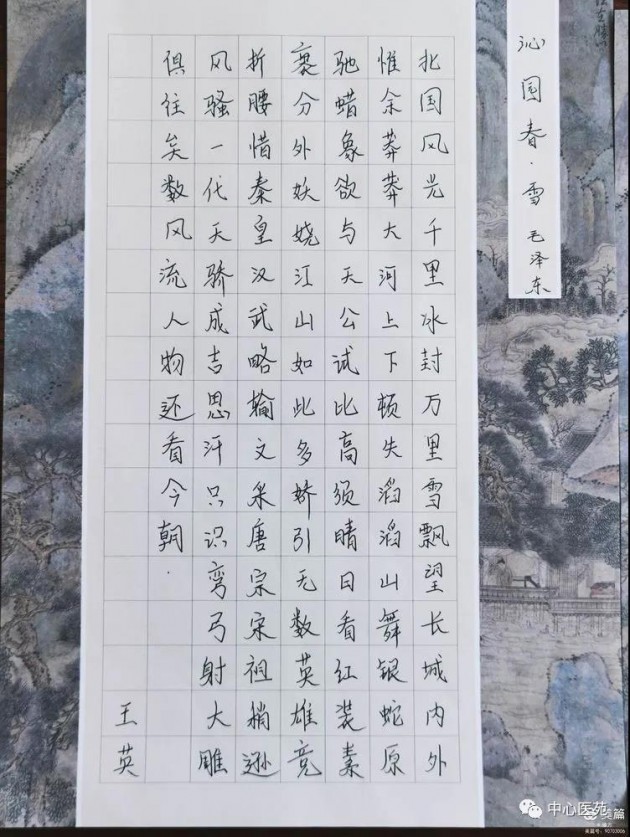 沁园春·雪 毛泽东
北国风光千里冰封万里雪飘望长城内外
惟余莽莽大河上下顿失滔滔山舞银蛇原
驰蜡象欲与天公试比高须晴日看红装素
裹分外妖娆江山如此多娇引无数英雄竞
折腰惜秦皇汉武略输文采唐宗宋祖稍逊
风骚一代天骄成吉思汗只识弯弓射大雕
俱往矣数风流人物还看今朝.
王英
中心医苑
美篇